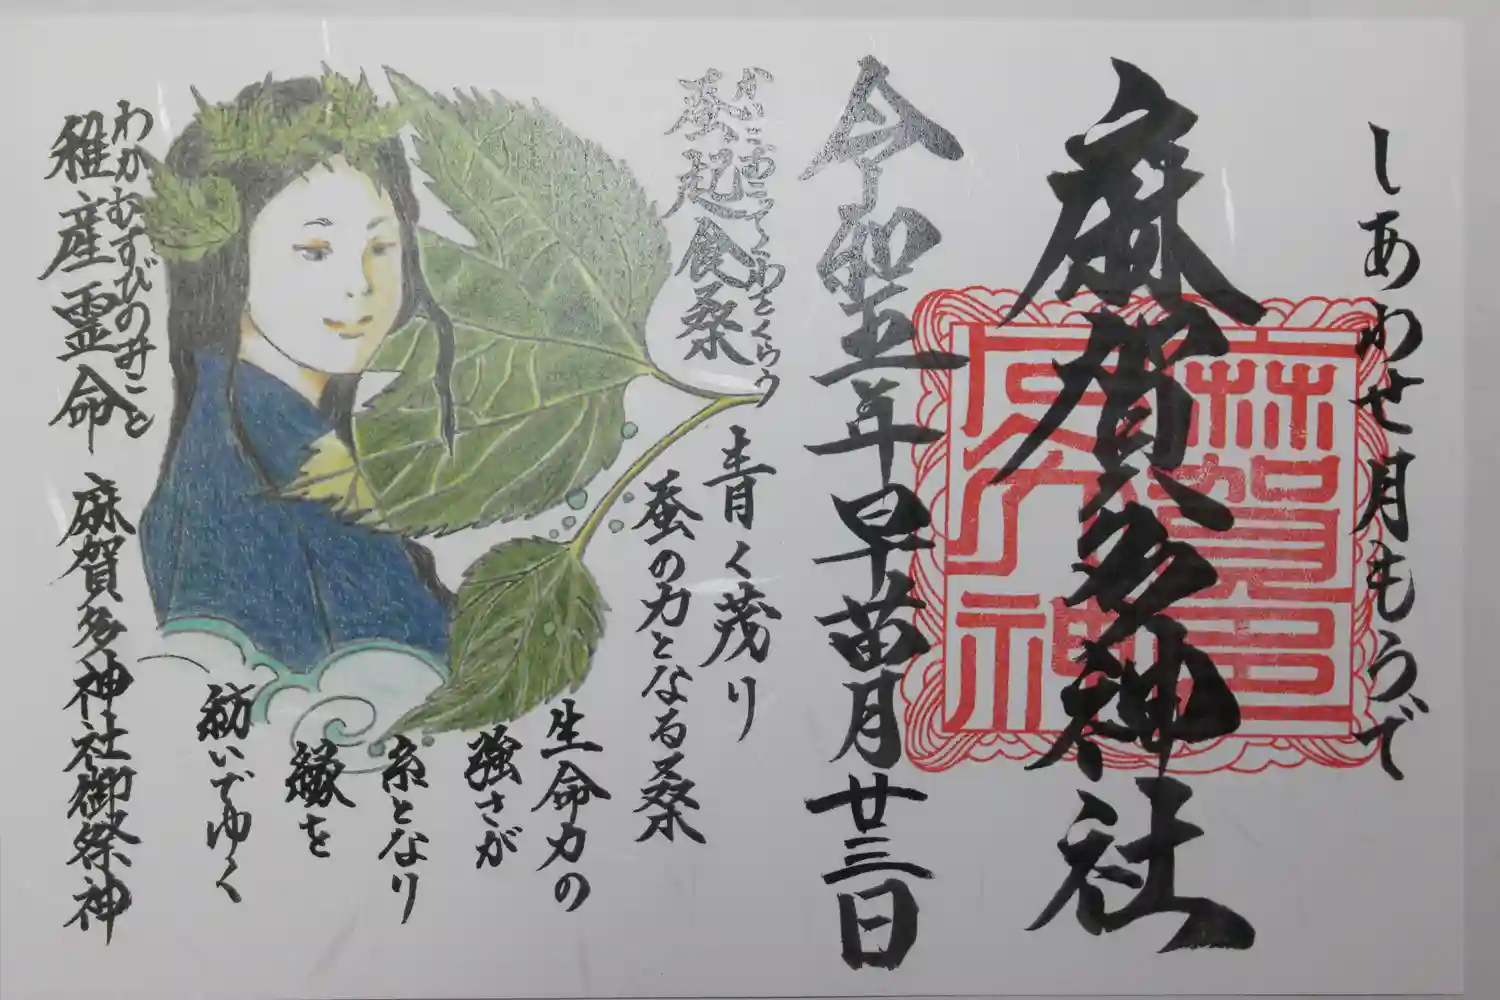 しあわせ月もうで
麻賀多神社
麻賀多
神社
令和五年早苗月廿三日
かいこおこってくわをくらう
蚕起食桑
青く茂り
蚕の力となる桑
生命力の
強さが
糸となり
縁を
紡いでゆく
わかむすびのみこと
稚産霊命
麻賀多神社御祭神